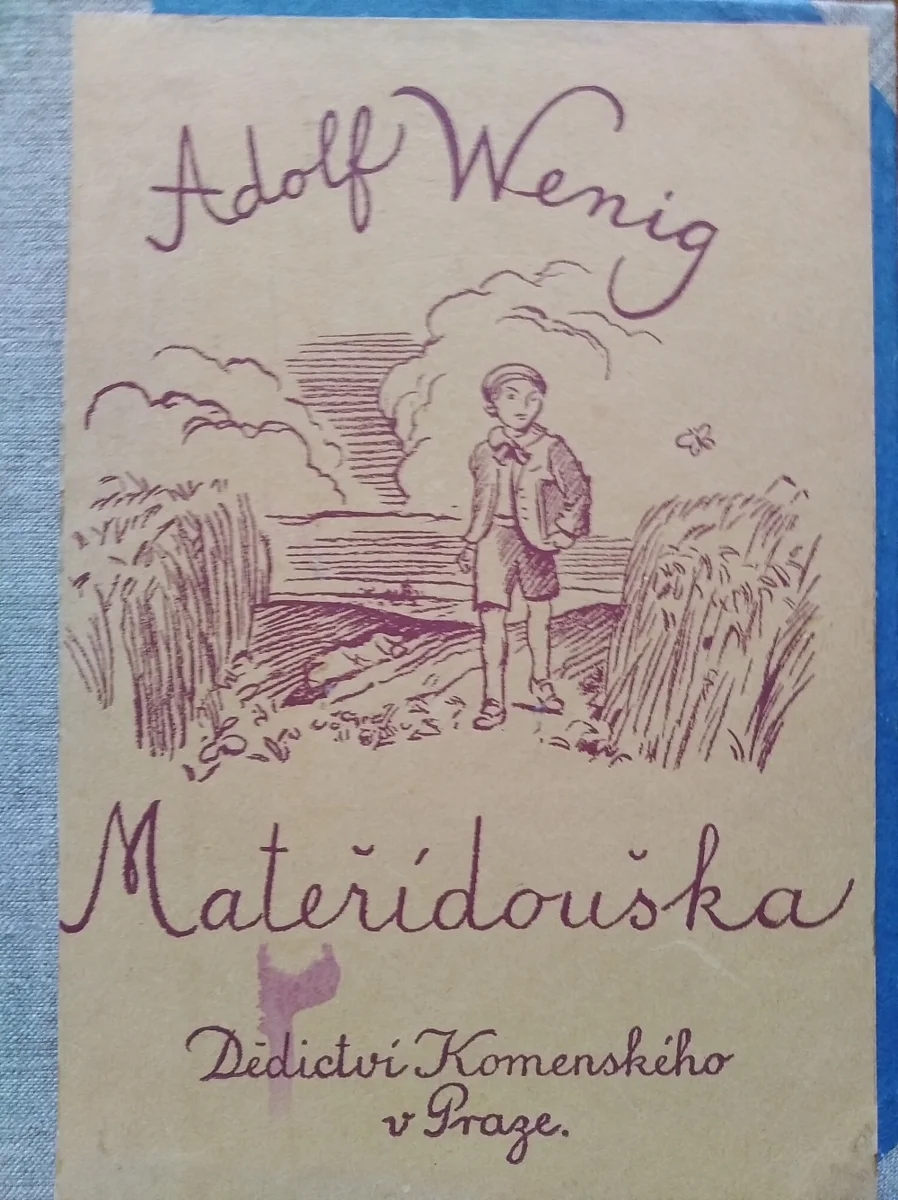 Adolf Wenig
Mateřídouška
Dědictví Komenského
v Praze.